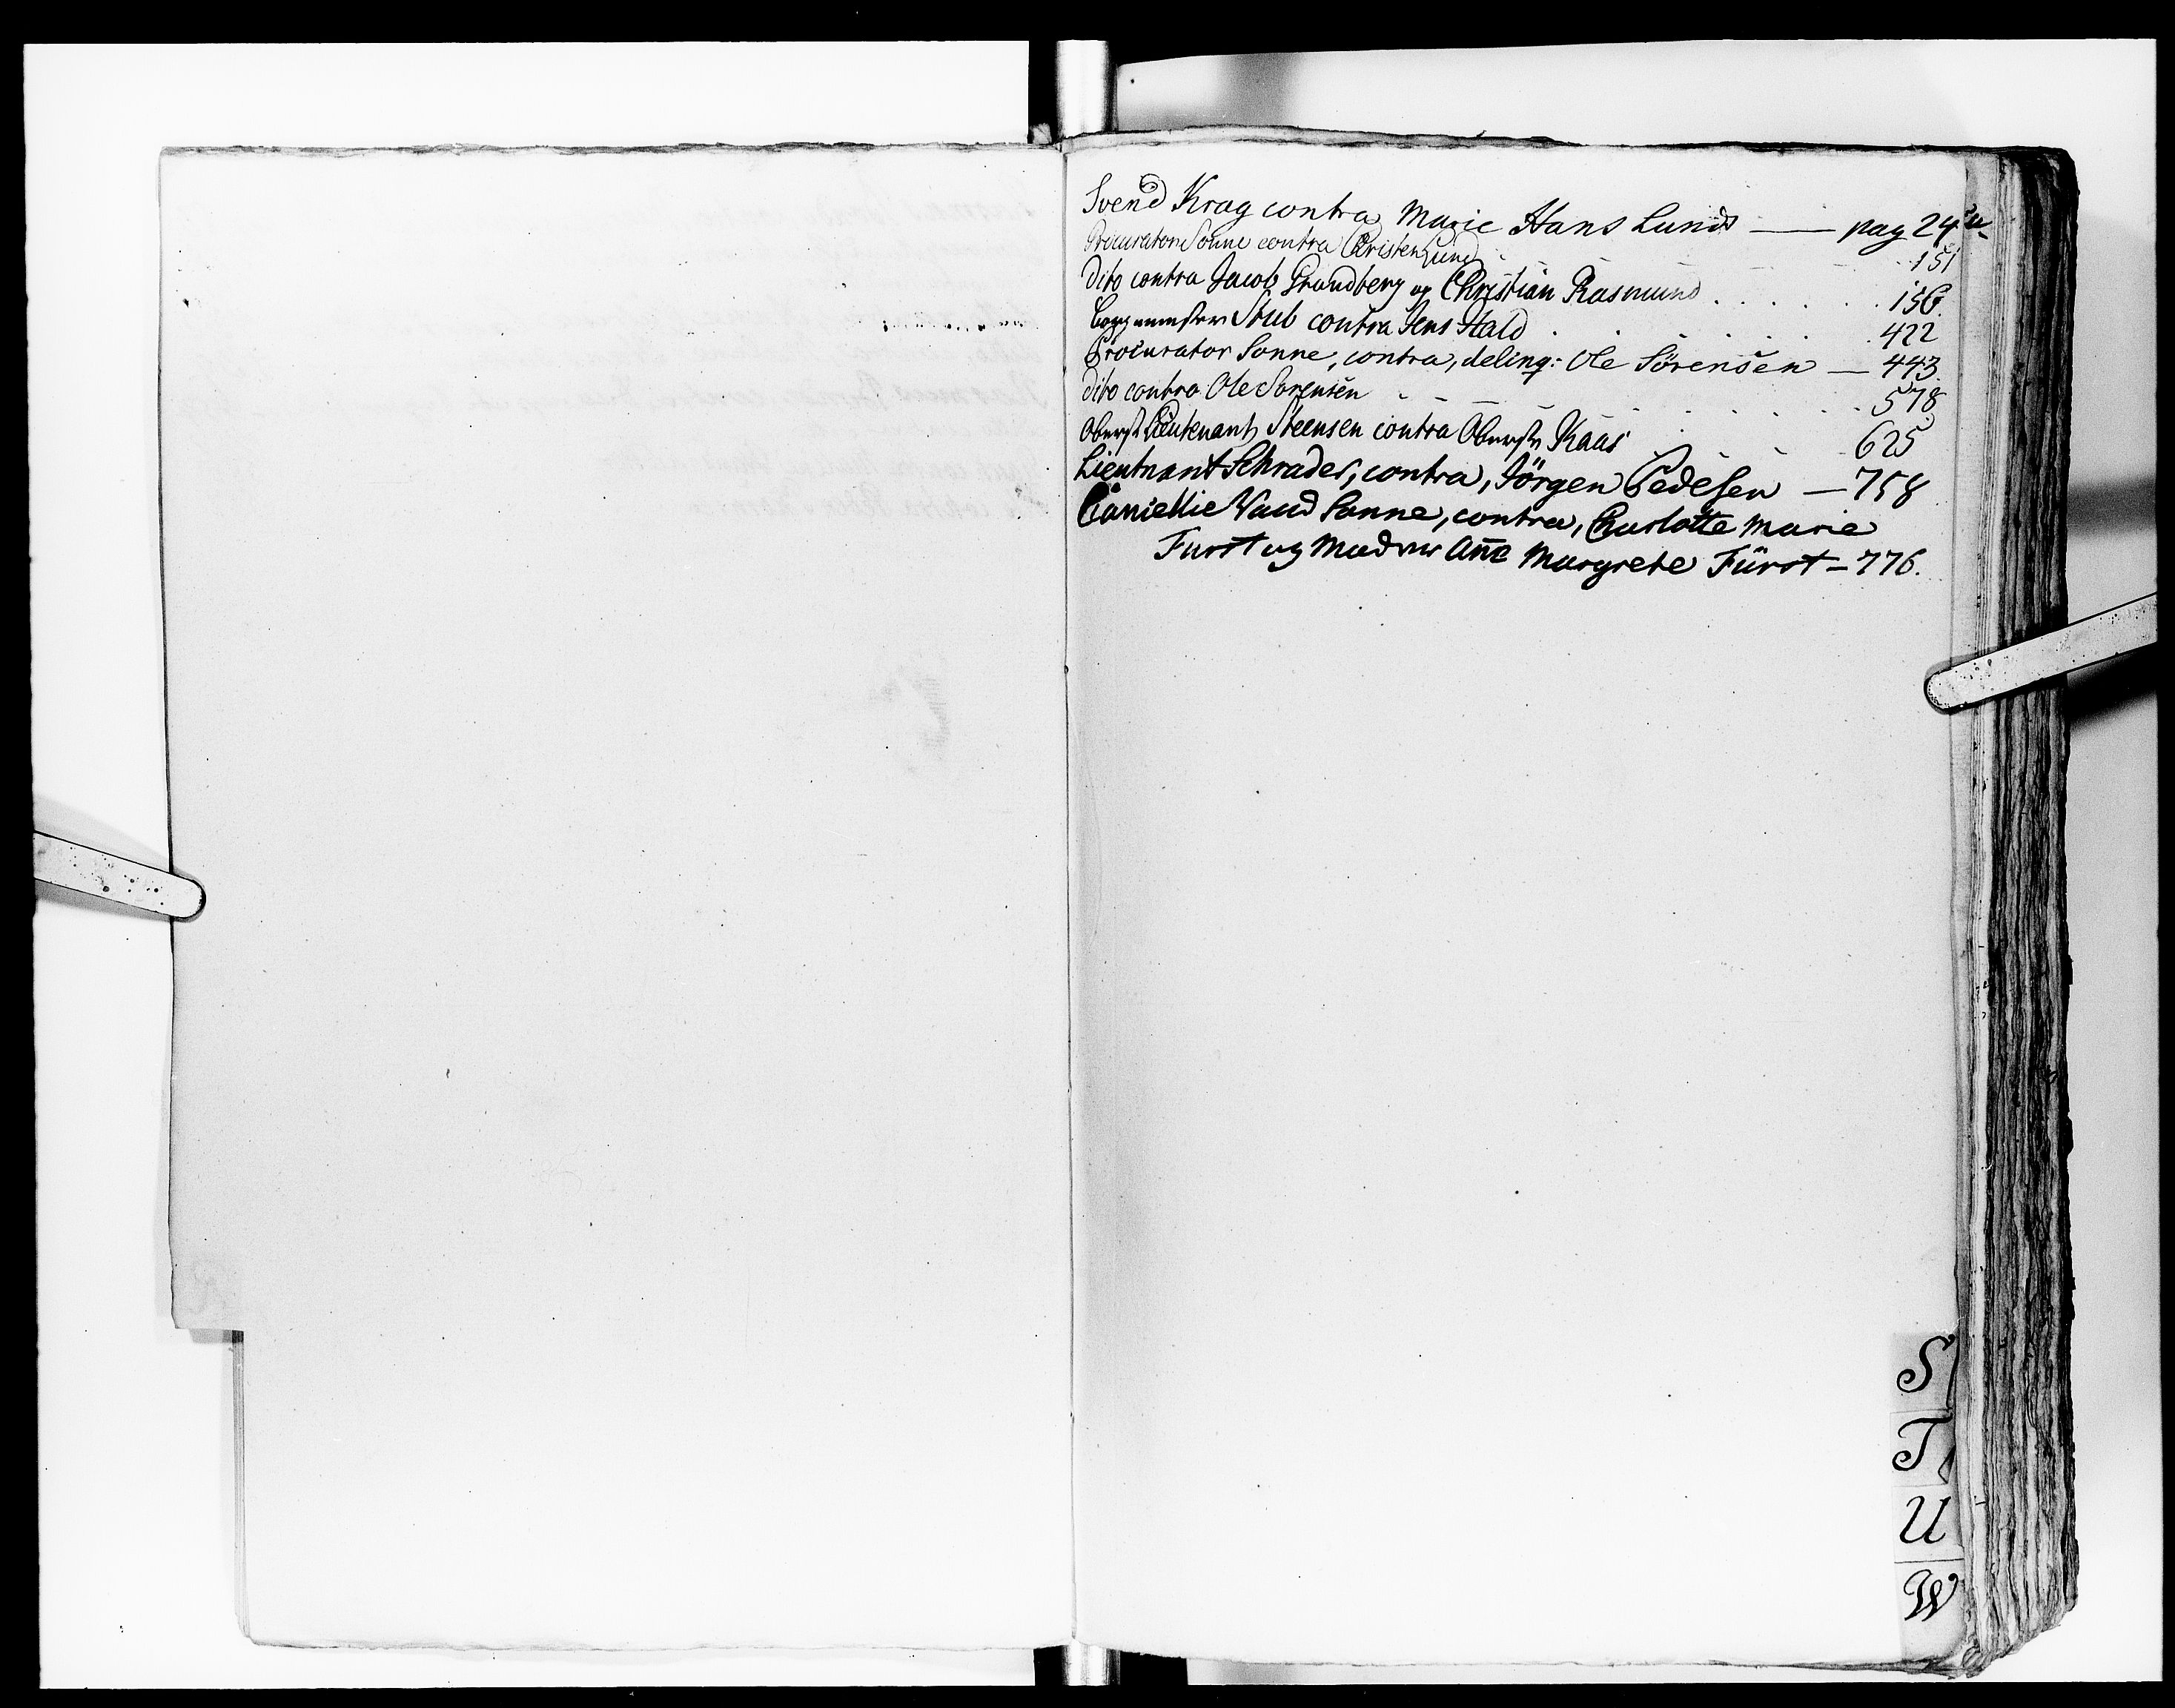 Svend Krag contra Marie Hans Lunds — pag 24
Procurator Sonne contra Christen Lund 151
Dito contra Jacob Grundberg og Christian Rasmund 156.
Stub contra Jens Hald 422
Procurator Sonne, contra, delinq: Ole Sörensen — 443.
dito contra Ole Sorensen 578
Oberst Lieutenant Steensen contra Oberste Kaas 625
Lieutnant Schrader, contra, Jörgen Pedersen — 758
Sonne, contra, Charlotte Marie
Furst og Anne Margrete Fürst — 776.
S
T
U
W